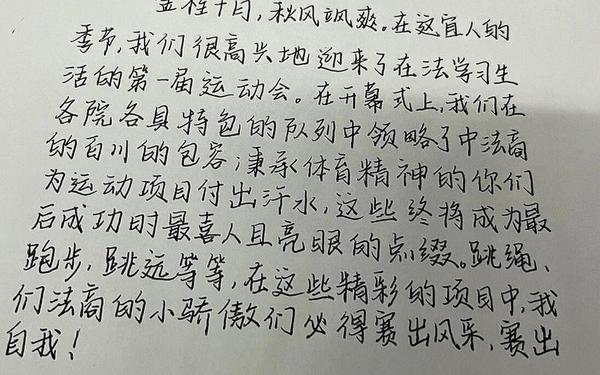 金桂十月,秋风飒爽。在这宜人的
季节,我们很高兴地迎来了在法学习生
活的第一届运动会。在开幕式上,我们在
各院各具特色的队列中领略了中法高
的百川的包容;秉承体育精神的你们
为运动项目付出汗水,这些终将成为最
后成功时最喜人且亮眼的点缀。跳绳、
跑步,跳远等等,在这些精彩的项目中,我
们法商的小骄傲们必得赛出风采,赛出
自我!